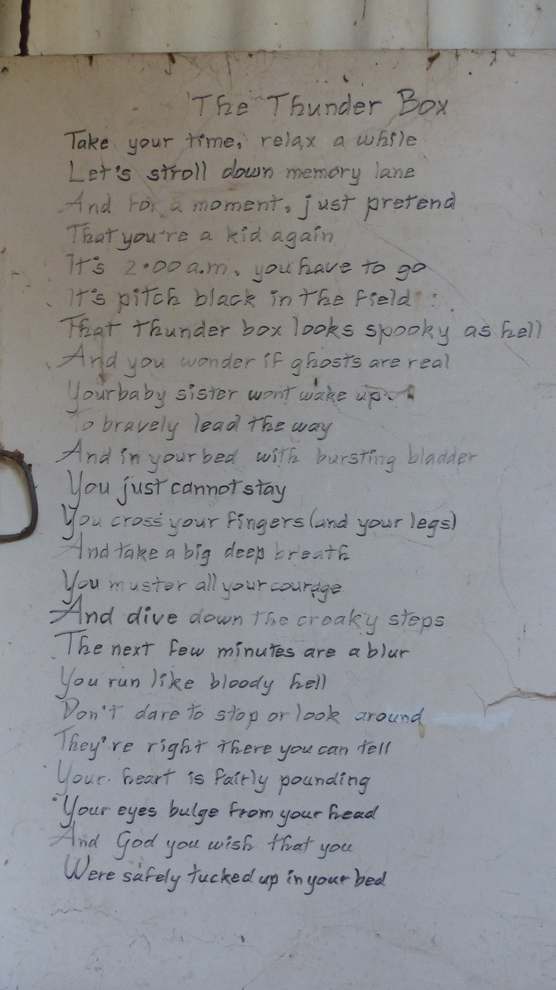 The Thunder Box
Take your time, relax a while
Let's stroll down memory lane
And for a moment, just pretend
That you're a kid again
It's 2.00 a.m. you have to go
It's pitch black in the field
That thunder box looks spooky as hell
And you wonder if ghosts are real
Your baby sister wont wake up
To bravely lead the way
And in your bed with bursting bladder
You just cannot stay
You cross your fingers (and your legs)
And take a big deep breath
You muster all your courage
And dive down the creaky steps
The next few minutes are a blur
You run like bloody hell
Don't dare to stop or look around
They're right there you can tell
Your heart is fairly pounding
Your eyes bulge from your head
And God you wish that you
Were safely tucked up in your bed